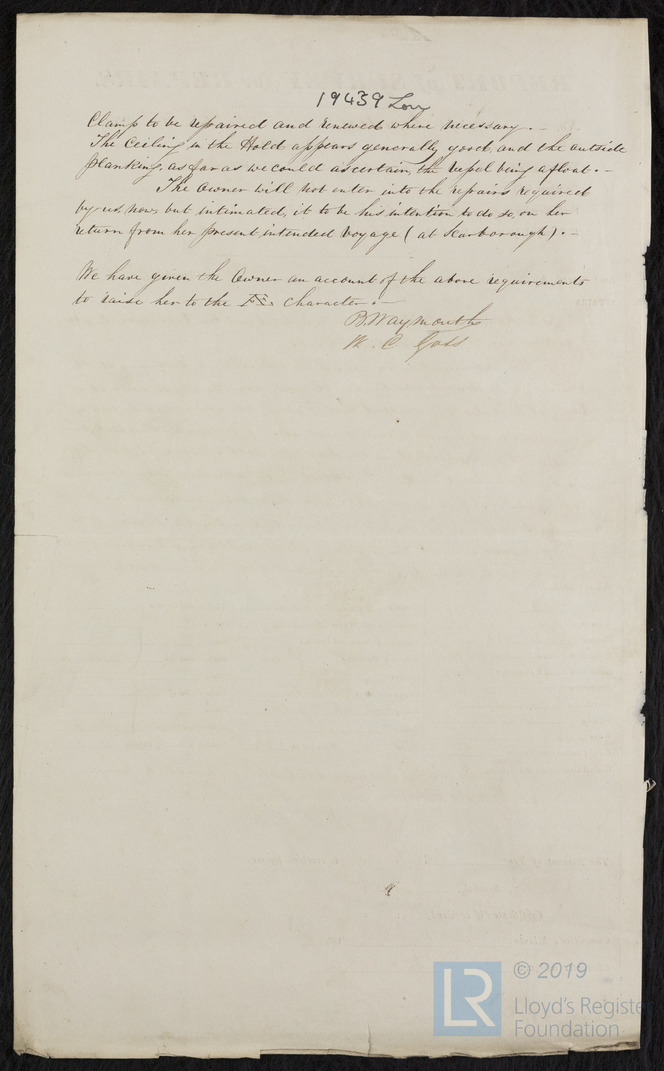 19439 Lon
Clamp to be repaired and renewed where necessary. -
The Ceiling in the Hold appears generally good, and the outside
planking, as far as we could ascertain, the vessel being afloat. -
The Owner will not enter into the repairs required
by us, now, but intimated, it to be his intention to do so, on her
return from her present intended Voyage (at Scarborough). -
We have given the Owner an account of the above requirements
to raise her to the Æ1 character. -
B. Waymouth
W. C. Goss
LR © 2019
Lloyd's Register
Foundation